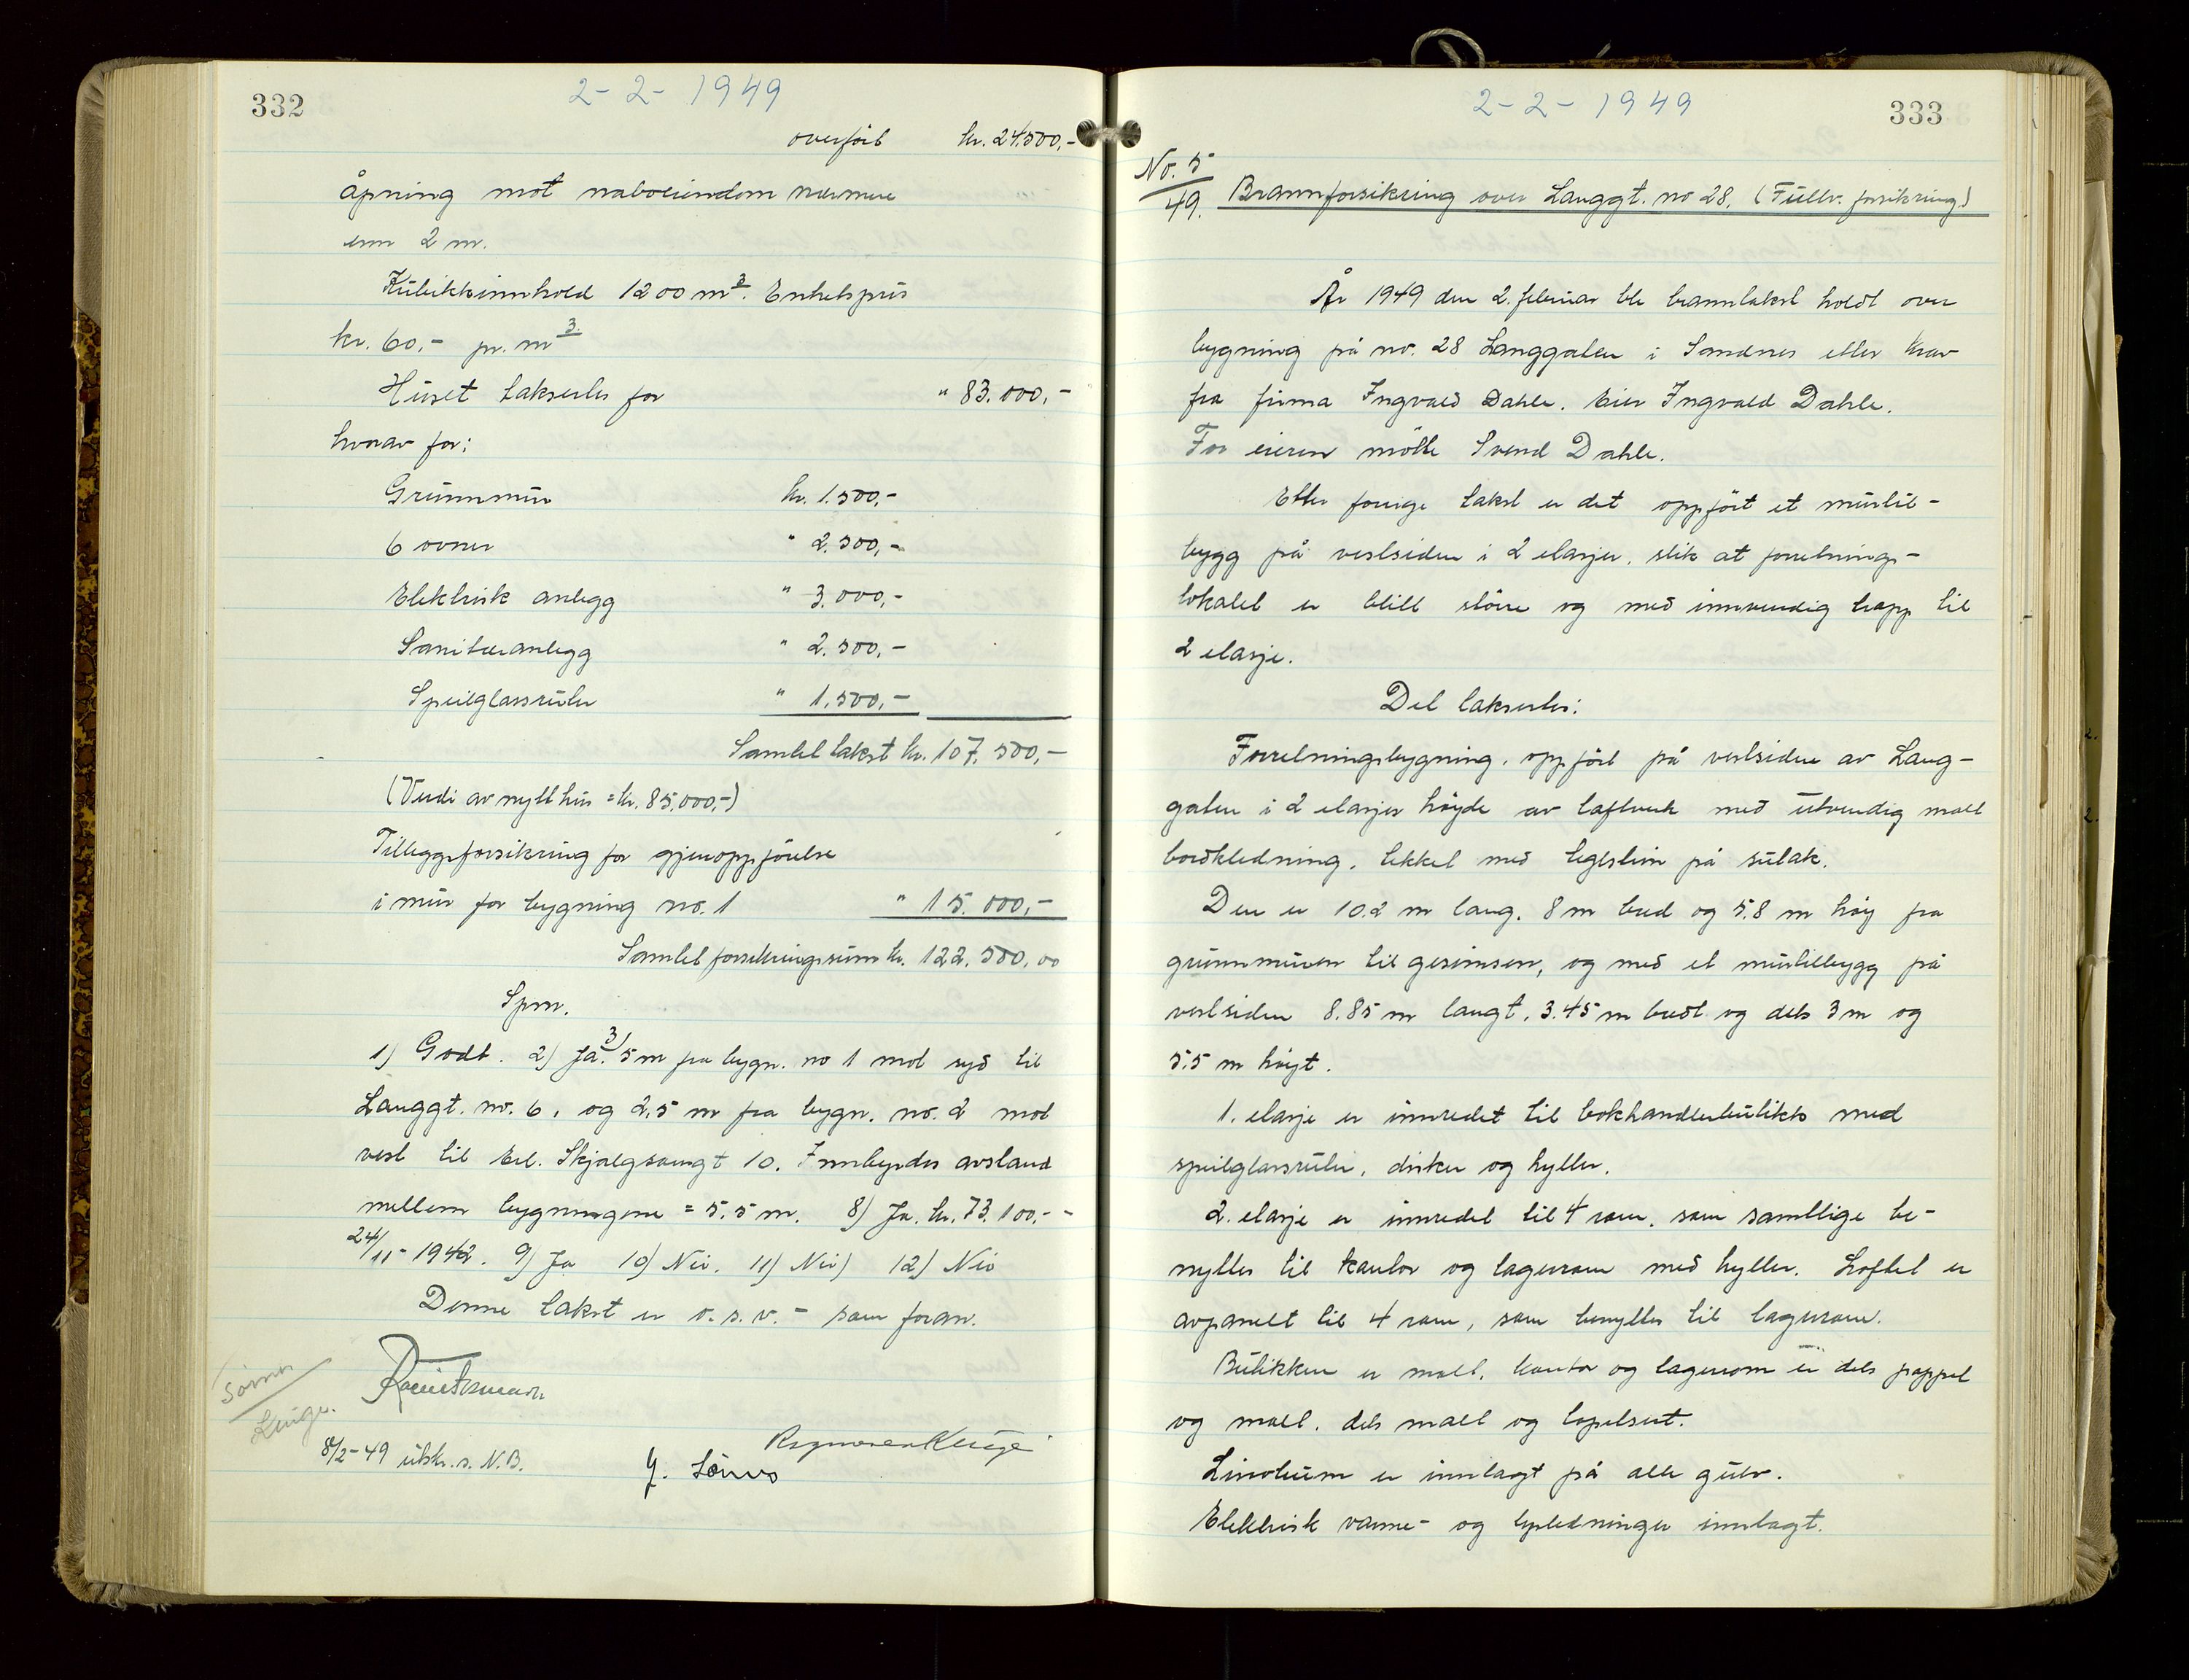 332
2-2-1949
overført kr. 24.500,-
åpning mot naboeiendom nærmere
enn 2 m.
Kubikkinnhold 1200 m3. Enhetspris
kr. 60,- pr. m3.
Huset takseres for " 83.000,-
hvorav for:
Grunnmur kr. 1.500,-
6 ovner " 2.500,-
Elektrisk anlegg " 3.000,-
Sanitæranlegg " 2.500,-
Speilglassruter " 1.500,-
Samlet takst kr. 107.500,-
(Verdi av nytt hus = kr. 85.000,-)
Tilleggsforsikring for gjenoppførelse
i mur for bygning no. 1 " 15.000,-
Samlet forsikringssum kr. 122.500,00
Spm.
1) Godt. 2) Ja. 3) 5 m fra bygn. no 1 mot syd til
Langgt. no. 6, og 2,5 m fra bygn. no. 2 mot
vest til Erl. Skjalgsonsgt 10. Innbyrdes avstand
mellem bygningene = 5,5 m. 8) Ja. kr. 73.100,- -
24/11-1942. 9) Ja 10) Nei. 11) Nei) 12) Nei
Denne takst er o.s.v. - som foran.
Sømo
Kluge.
8/2-49 utskr. s. N.B.
Kluge
Y. Sømo
2-2-1949
333
No. 5
49. Brannforsikring over Langgt. no 28. (Fullv. forsikring)
År 1949 den 2. februar ble branntakst holdt over
bygning på no. 28 Langgaten i Sandnes etter krav
fra firma Ingvald Dahle. Eier Ingvald Dahle.
For eieren møtte Svend Dahle.
Etter forrige takst er det oppført et murtil-
bygg på vestsiden i 2 etasjer, slik at forretnings-
lokalet er blitt større og med innvendig trapp til
2 etasje.
Det takseres:
Forretningsbygning, oppført på vestsiden av Lang-
gaten i 2 etasjer høyde av laftverk med utvendig malt
bordkledning, tekket med teglstein på sutak.
Den er 10.2 m lang, 8 m bred og 5.8 m høy fra
grunnmuren til gesimsen, og med et murtilbygg på
vestsiden 8.85 m langt, 3.45 m bredt og dels 3 m og
5.5 m høyt.
1. etasje er innredet til bokhandlerbutikk med
speilglassruter, disker og hyller.
2. etasje er innredet til 4 rom, som samtlige be-
nyttes til kontor og lagerrom med hyller. Loftet er
avpanelt til 4 rom, som benyttes til lagerrom.
Butikken er malt, kontor og lagerrom er dels pappet
og malt, dels malt og tapetsert.
Linoleum er innlagt på alle gulv.
Elektrisk varme- og lysledninger innlagt.